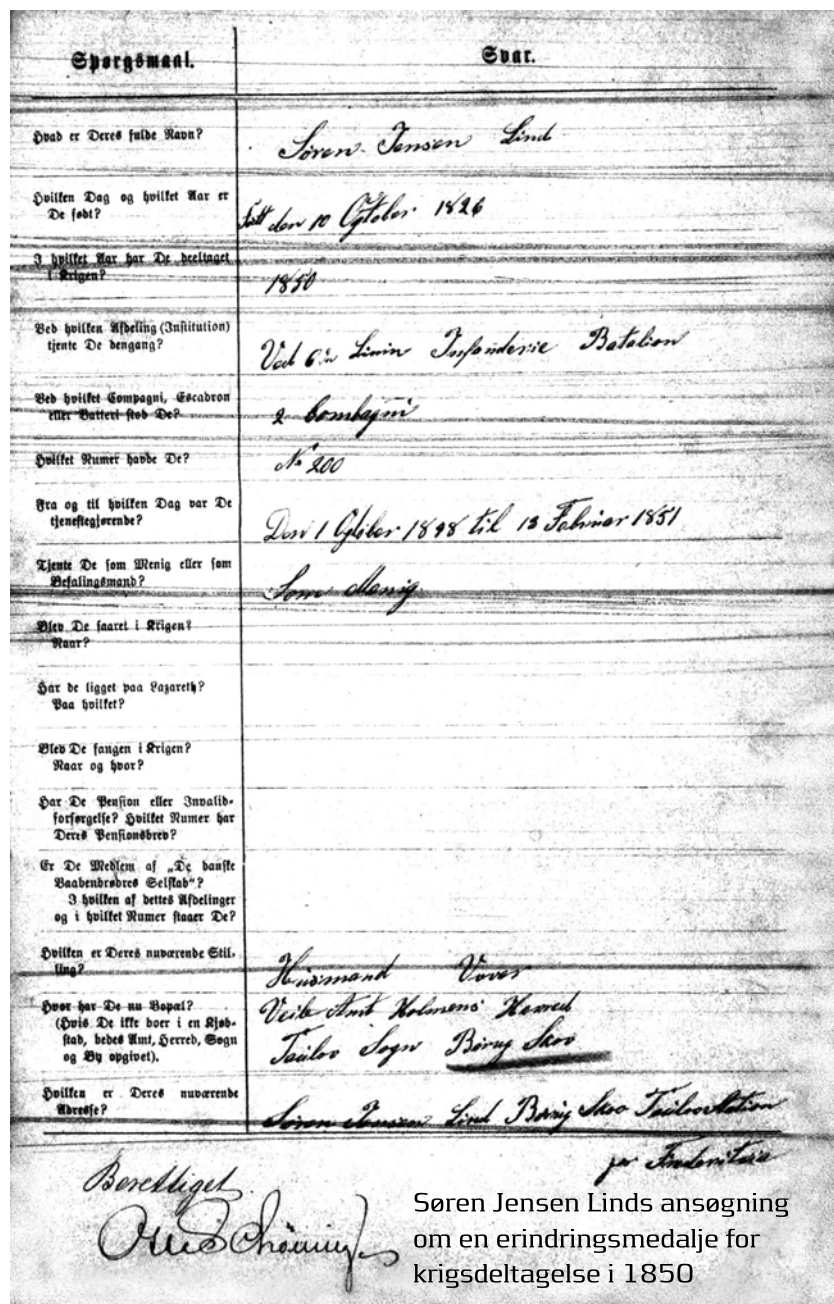 Spørgsmaal. Svar.
Hvad er Deres fulde Navn? Søren Jensen Lind
Hvilken Dag og hvilket Aar er
De født? født den 10 Ogtober 1826
I hvilket Aar har De deeltaget
i Krigen? 1850
Ved hvilken Afdeling (Institution)
tjente De dengang? Ved 6te Linin Infanderie Batalion
Ved hvilket Compagni, Escadron
eller Batteri stod De? 2 Combagni
Hvilket Numer havde De? No 200
Fra og til hvilken Dag var De
tjenestegjørende? Den 1 Ogtober 1848 til 13 Februar 1851
Tjente De som Menig eller som
Befalingsmand? Som Menig
Blev De saaret i Krigen?
Naar?
Har de ligget paa Lazareth?
Paa hvilket?
Blev De fangen i Krigen?
Naar og hvor?
Har De Pension eller Invalid-
forsørgelse? Hvilket Numer har
Deres Pensionsbrev?
Er De Medlem af „De danske
Vaabenbrødres Selskab"?
I hvilken af dettes Afdelinger
og i hvilket Numer staaer De?
Hvilken er Deres nuværende Stil-
ling? Huusmand Væver
Hvor har De nu Bopæl? Veile Amt Holmens Herred
(Hvis De ikke boer i en Kjøb-
stad, bedes Amt, Herred, Sogn Taulov Sogn Børup Skov
og By opgivet).
Hvilken er Deres nuværende
Adresse? Søren Jensen Lind Børup Skov Taulov Station
per Fredericia
Berettiget
Søren Jensen Linds ansøgning
om en erindringsmedalje for
krigsdeltagelse i 1850